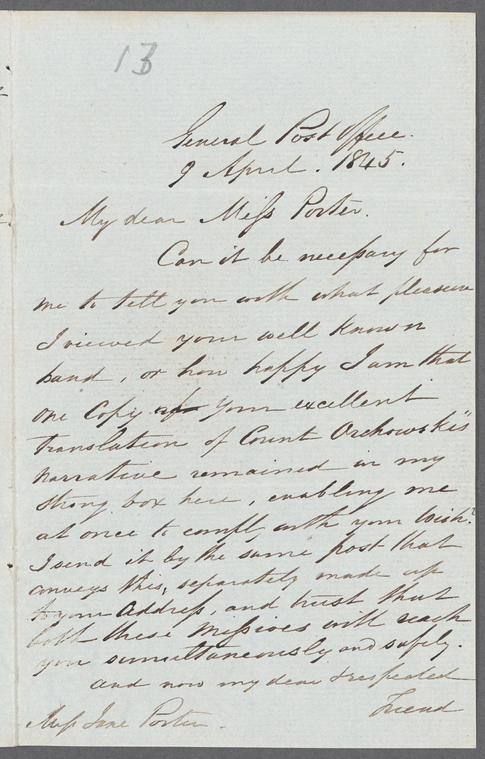 13
General Post Office.
9 April. 1845.
My dear Miss Porter.
Can it be necessary for
me to tell you with what pleasure
I viewed your well known
hand, or how happy I am that
one Copy of your excellent
Translation of Count Orchowski's
Narrative remained in my
strong box here, enabling me
at once to comply with your Wish.
I send it by the same post that
conveys this, separately made up
to your Address, and trust that
both these Missives will reach
you simultaneously and safely.
and now my dear & respected
Friend
Miss Jane Porter.